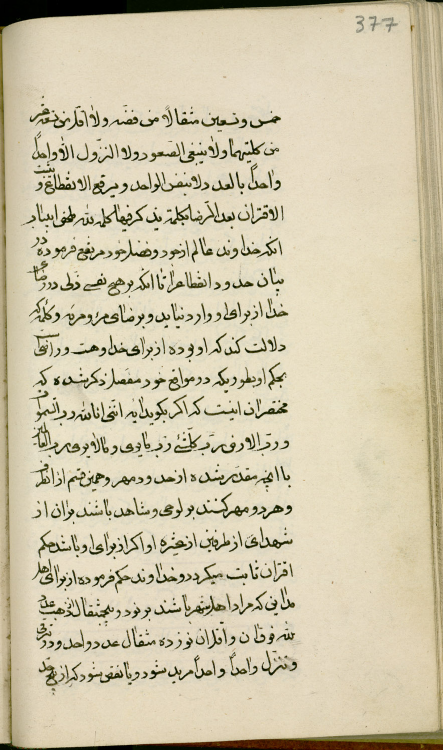 377
خمس و تسعین مثقالاً من فضه ولا اقل من تسعة عشر
من کلتیهما ولا ینبغی الصعود ولا النزول الا واحداً
واحداً بالعدد لا ینقص الواحد و یرفع الانقطاع و یثبت
الاقتران بعد الرضا بکلمة یذکر فیها کلمة لله
آنکه خداوند عالم از جود و فضل خود مرتفع فرموده در
بیان حدود انقطاع را تا آنکه بر هیچ نفسی ذلی در رضای
خدا از برای او وارد نیاید و برضای مرء و مرئه و کلمه که
دلالت کند که او بوده از برای خدا و هست و راضی
بحکم او بطوریکه در مواقع خود مفصل ذکر شده که
مختصر آن اینست که اگر بگوید آیه اننی انا لله رب السموات
و رب الارض رب کلشئ رب ما یری و ما لا یری رب العالمین
با آنچه مقدر شده از حدود مهر و همین قسم از طرف
و هر دو مهر کنند بر لوحی و شاهد باشند بر آن از
شهدای از طرفین از غیره او اگر از برای او باشد حکم
اقتران ثابت میگردد و خداوند حکم فرموده از برای اهل
مداین که مراد اهل شهر باشند بر نود و پنج مثقال ذهب
عدد لله فوق آن و اقل آن نوزده مثقال عدد واحد و در ترقی
و تنزل واحداً واحداً مزید شود و یا نقص شود که از پنج حد